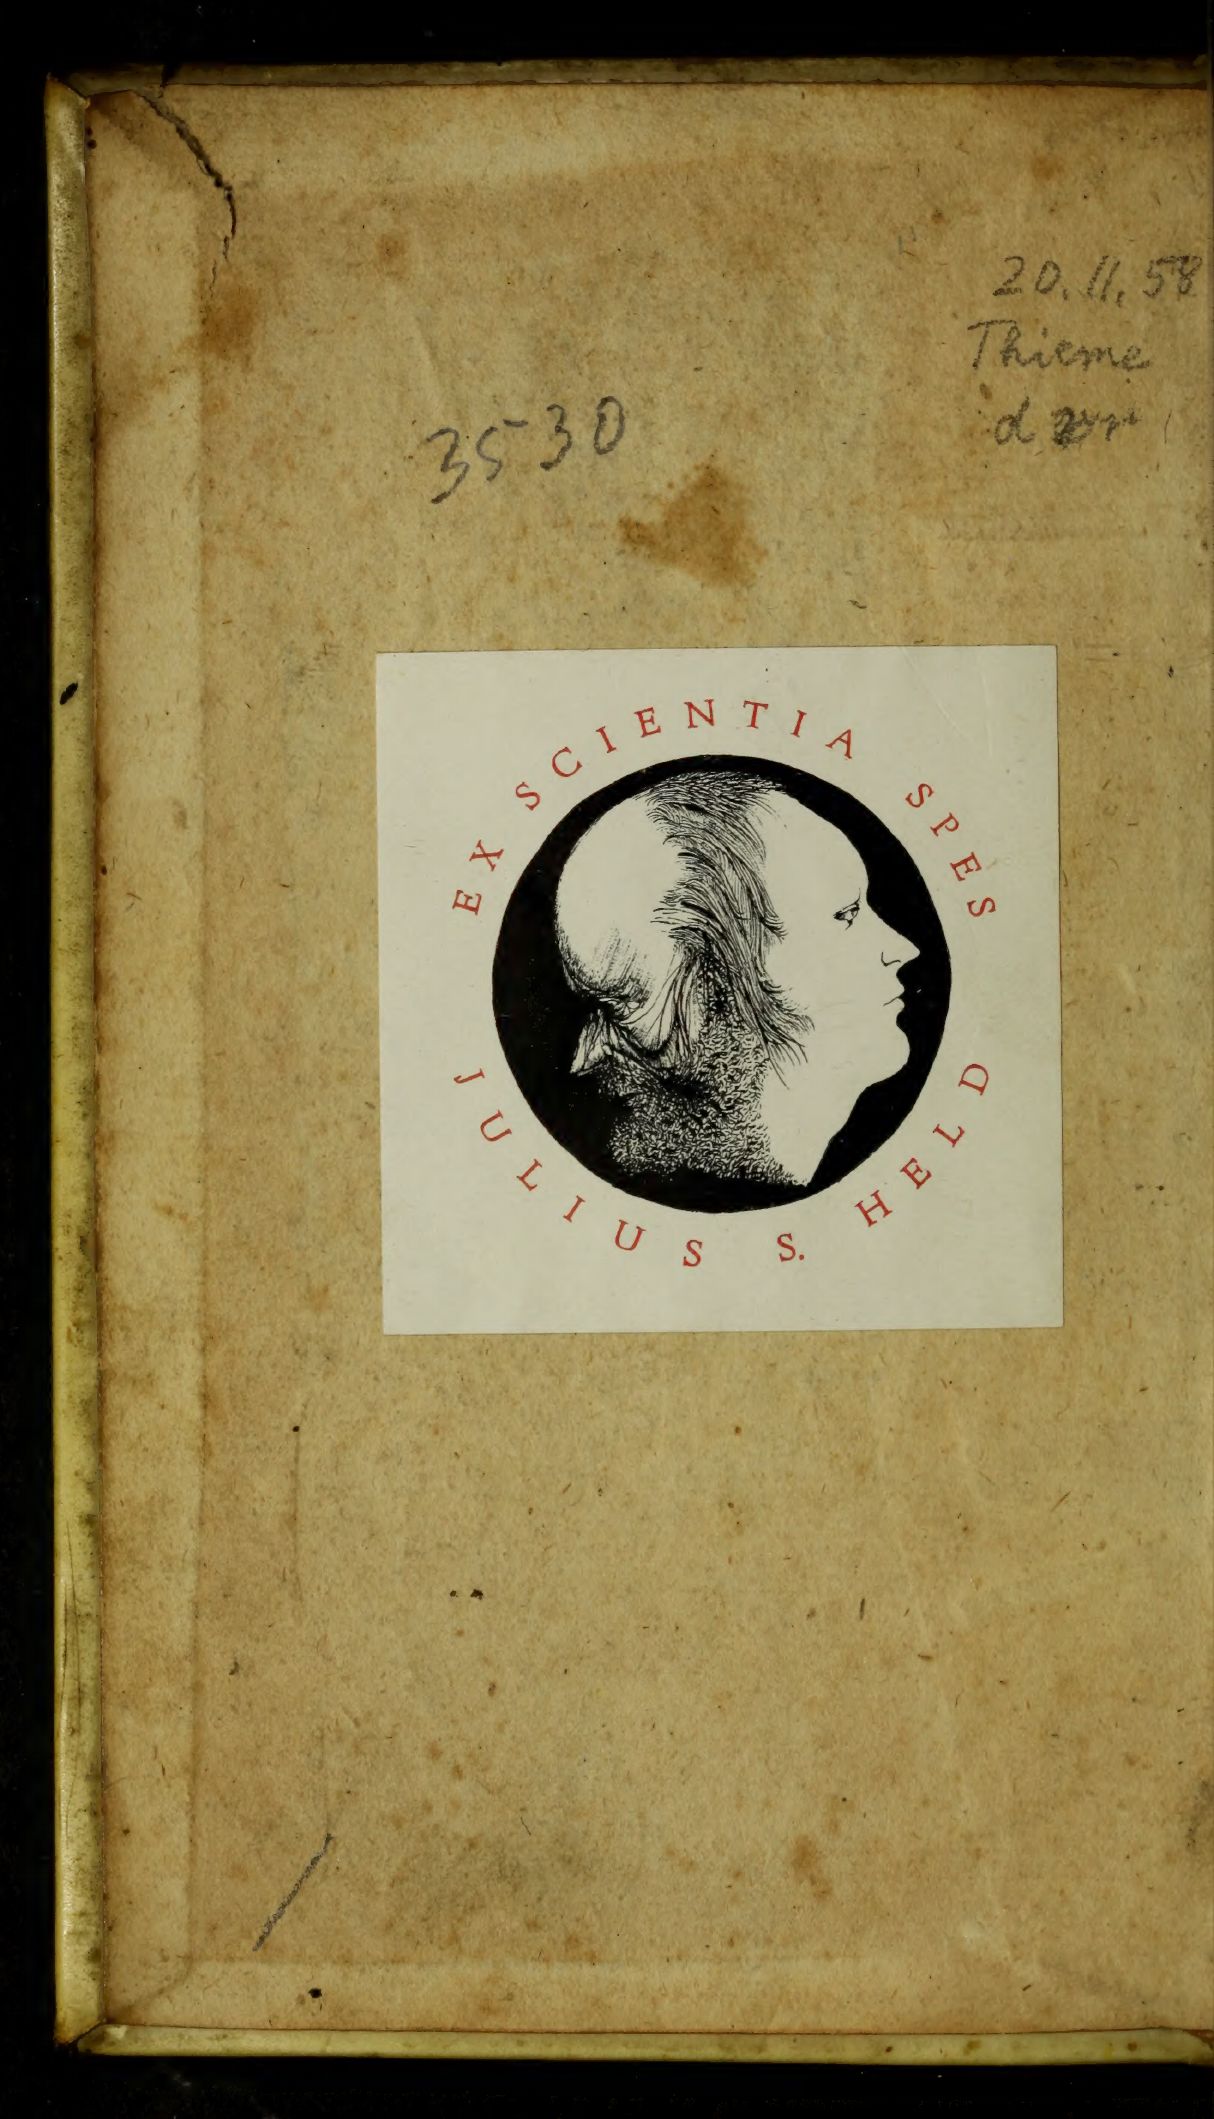 20.11.58
Thieme
d
3530
EX SCIENTIA SPES
JULIUS S. HELD